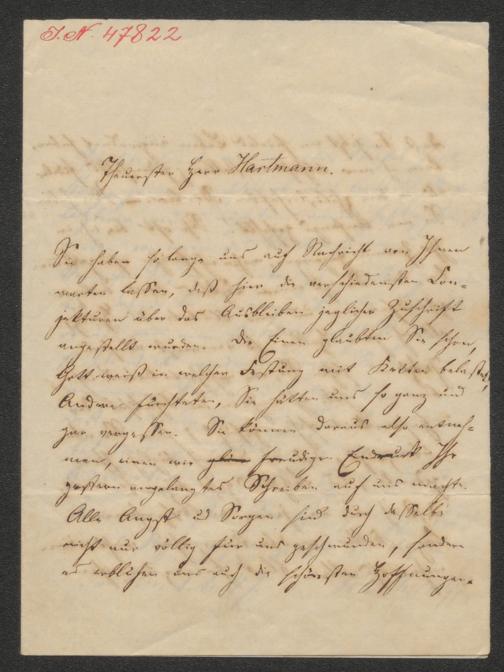 I.N. 47822
Theuerster Herr Hartmann.
Sie haben so lange uns auf Nachricht von Ihnen
warten lassen, daß hier die verschiedensten Con-
jekturen über das Ausbleiben jeglicher Zuschrift
angestellt wurden. Die Einen glaubten Sie schon,
Gott weiß in welcher Festung mit Ketten belastet,
Andere fürchteten, Sie hätten uns so ganz und
gar vergessen. Sie können daraus also entneh-
men, einen wie freudigen Eindruck Ihr
gestern angelangtes Schreiben auf uns machte.
Alle Angst ud Sorgen sind durch dasselbe
nicht nur völlig für uns geschwunden, sondern
es erblühen uns auch die schönsten Hoffnungen